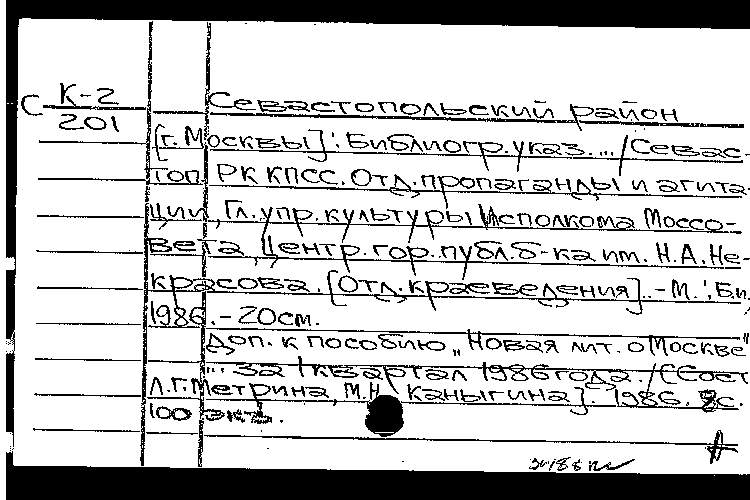 С К-2
201
Севастопольский район
[г. Москвы]: Библиогр. указ. ... / Севас-
топ. РК КПСС. Отд. пропаганды и агита-
ции, Гл. упр. культуры Исполкома Моссо-
вета, Центр. гор. публ. б-ка им. Н.А. Не-
красова. [Отд. краеведения]. - М.: Б.и.,
1986. - 20см.
Доп. к пособию „Новая лит. о Москве"
... за I квартал 1986 года. / [Сост.
Л.Г. Метрина, М.Н. Каныгина]. 1986. 8с.
100 экз.